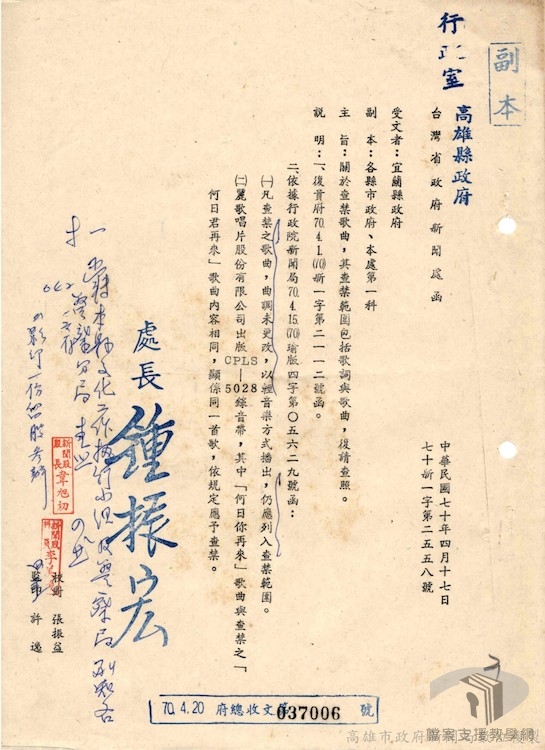 副本
行政室
高雄縣政府
台灣省政府新聞處函
中華民國七十年四月十七日
七十新一字第二五五八號
受文者：宜蘭縣政府
副本：各縣市政府、本處第一科
主旨：關於查禁歌曲，其查禁範圍包括歌詞與歌曲，復請查照。
說明：一、復貴府70.4.1.(70)新一字第二一一二號函。
二、依據行政院新聞局70.4.15.(70)瑜版四字第〇五六二九號函：
㈠凡查禁之歌曲，曲調未更改，以輕音樂方式播出，仍應列入查禁範圍。
㈡麗歌唱片股份有限公司出版CPLS—5028錄音帶，其中「何日你再來」歌曲與查禁之「
何日君再來」歌曲內容相同，顯係同一首歌，依規定應予查禁。
處長 鍾振宏
新聞股
股長 韋旭初
新聞股
校對 張振益
監印 許逸
70.4.20 府總收文第037006號
檔案支援教學網